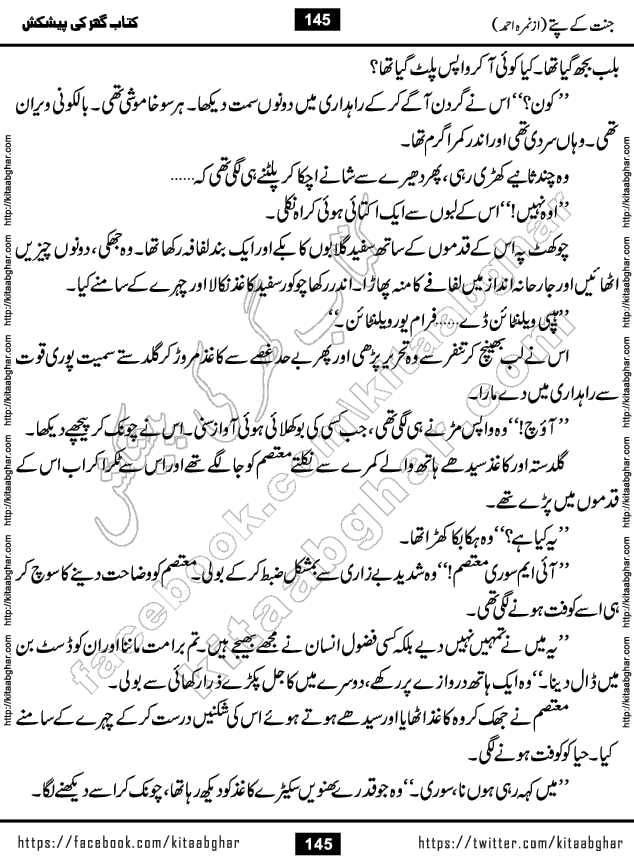 جنت کے پتے (از نمرہ احمد)
145
کتاب گھر کی پیشکش
بلب بجھ گیا تھا۔ کیا کوئی آ کر واپس پلٹ گیا تھا؟
’’کون؟‘‘ اس نے گردن آگے کر کے راہداری میں دونوں سمت دیکھا۔ ہر سو خاموشی تھی۔ بالکونی ویران
تھی۔ وہاں سردی تھی اور اندر کمرا گرم تھا۔
وہ چند ثانیے کھڑی رہی، پھر دھیرے سے شانے اچکا کر پلٹنے ہی لگی تھی کہ......
’’اوہ نہیں!‘‘ اس کے لبوں سے ایک اکتائی ہوئی کراہ نکلی۔
چوکھٹ پہ اس کے قدموں کے ساتھ سفید گلابوں کا بکے اور ایک بند لفافہ رکھا تھا۔ وہ جھکی، دونوں چیزیں
اٹھائیں اور جارحانہ انداز میں لفافے کا منہ پھاڑا۔ اندر رکھا چوکور سفید کاغذ نکالا اور چہرے کے سامنے کیا۔
’’ہیپی ویلنٹائن ڈے...... فرام یور ویلنٹائن۔‘‘
اس نے لب بھینچ کر تنفر سے وہ تحریر پڑھی اور پھر بے حد غصے سے کاغذ مروڑ کر گلدستے سمیت پوری قوت
سے راہداری میں دے مارا۔
’’آؤچ!‘‘ وہ واپس مڑنے ہی لگی تھی، جب کسی کی بوکھلائی ہوئی آواز سنی۔ اس نے چونک کر پیچھے دیکھا۔
گلدستہ اور کاغذ سیدھے ہاتھ والے کمرے سے نکلتے معتصم کو جا لگے تھے اور اس سے ٹکرا کر اب اس کے
قدموں میں پڑے تھے۔
’’یہ کیا ہے؟‘‘ وہ ہکا بکا کھڑا تھا۔
’’آئی ایم سوری معتصم!‘‘ وہ شدید بے زاری سے بمشکل ضبط کر کے بولی۔ معتصم کو وضاحت دینے کا سوچ کر
ہی اسے کوفت ہونے لگی تھی۔
’’یہ میں نے تمہیں نہیں دیے بلکہ کسی فضول انسان نے مجھے بھیجے ہیں۔ تم برا مت ماننا اور ان کو ڈسٹ بن
میں ڈال دینا۔‘‘ وہ ایک ہاتھ دروازے پر رکھے، دوسرے میں کاجل پکڑے ذرا رکھائی سے بولی۔
معتصم نے جھک کر وہ کاغذ اٹھایا اور سیدھے ہوتے ہوئے اس کی شکنیں درست کر کے چہرے کے سامنے
کیا۔ حیا کو کوفت ہونے لگی۔
’’میں کہہ رہی ہوں نا، سوری۔‘‘ وہ جو قدرے بھنویں سکیڑے کاغذ کو دیکھ رہا تھا، چونک کر اسے دیکھنے لگا۔
http://kitaabghar.com http://kitaabghar.com http://kitaabghar.com http://kitaabghar.com http://kitaabghar.com http://kitaabghar.com
http://kitaabghar.com http://kitaabghar.com http://kitaabghar.com http://kitaabghar.com http://kitaabghar.com http://kitaabghar.com
کتاب گھر کی پیشکش
kitaabghar.com
facebook.com/kitaabghar
https://facebook.com/kitaabghar
145
https://twitter.com/kitaabghar